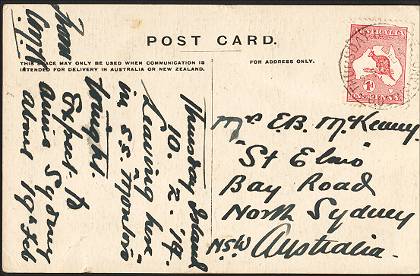 POST CARD.
THIS SPACE MAY ONLY BE USED WHEN COMMUNICATION IS
INTENDED FOR DELIVERY IN AUSTRALIA OR NEW ZEALAND.
FOR ADDRESS ONLY.
Thursday Island
10. 2. 14.
Leaving here
in S.S. Montoro
tonight.
Expect to
arrive Sydney
about 19th Feb
from
AUSTRALIA
Mrs E.B. McKenny
"St Elmo"
Bay Road
North Sydney
NSW Australia.